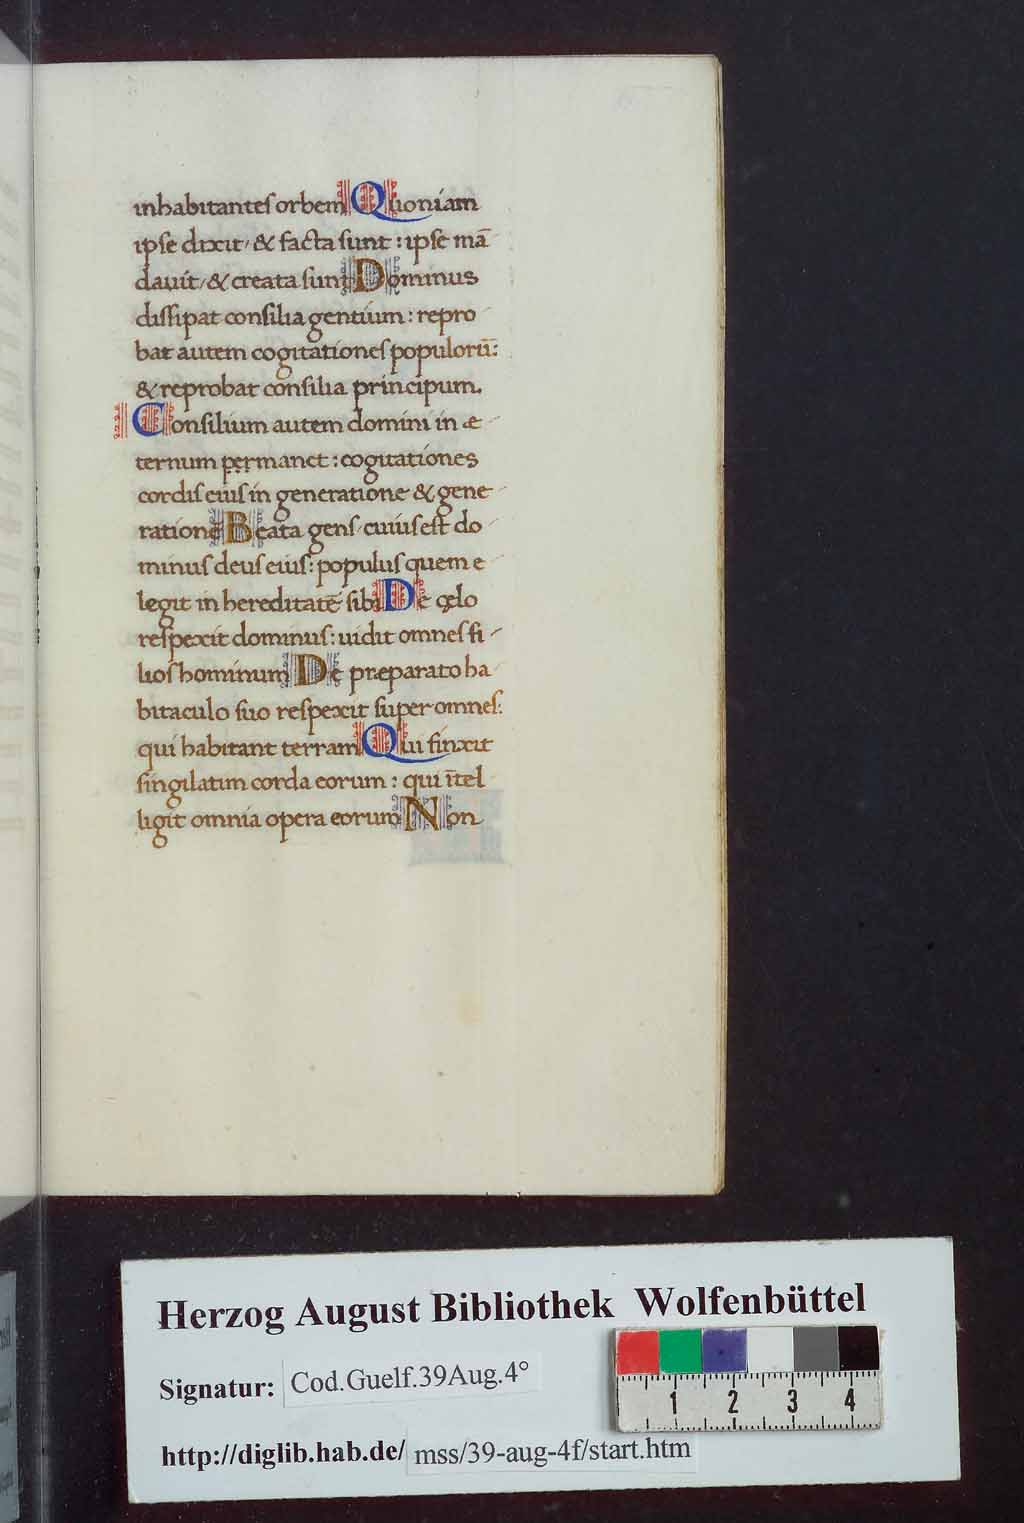 inhabitantes orbem Quoniam
ipse dixit, & facta sunt : ipse mā
davit, & creata sunt Dominus
dissipat consilia gentium : repro
bat autem cogitationes populorū:
& reprobat consilia principum.
Consilium autem domini in æ
ternum permanet : cogitationes
cordis eius in generatione & gene
ratione Beata gens cuius est do
minus deus eius: populus quem e
legit in hereditatē sibi De cęlo
respexit dominus: uidit omnes fi
lios hominum De præparato ha
bitaculo suo respexit super omnes:
qui habitant terram Qui finxit
singilatim corda eorum : qui ītel
ligit omnia opera eorum Non
Herzog August Bibliothek Wolfenbüttel
Signatur: Cod.Guelf.39Aug.4°
1 2 3 4
http://diglib.hab.de/ mss/39-aug-4f/start.htm